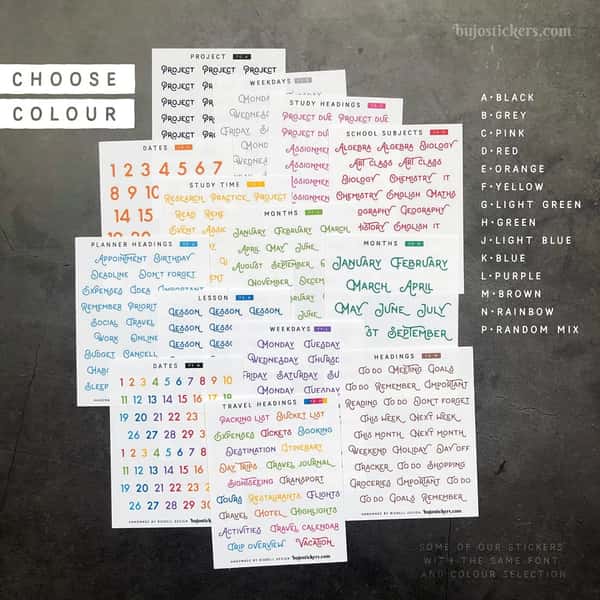 bujostickers.com
CHOOSE
COLOUR
A•BLACK
B•GREY
C•PINK
D•RED
E•ORANGE
F•YELLOW
G•LIGHT GREEN
H•GREEN
J•LIGHT BLUE
K•BLUE
L•PURPLE
M•BROWN
N•RAINBOW
P•RANDOM MIX
PROJECT
PROJECT PROJECT PROJECT
PROJECT PROJECT PROJECT
PROJECT
PROJECT
PROJECT
WEEKDAYS
MONDAY
WEDNESDAY
FRIDAY
MONDAY
STUDY HEADINGS
PROJECT DUE PROJECT DUE
PROJECT DUE
ASSIGNMENT
ASSIGNMENT
SCHOOL SUBJECTS
ALGEBRA ALGEBRA BIOLOGY
ART CLASS ART CLASS
BIOLOGY CHEMISTRY IT
CHEMISTRY ENGLISH MATHS
GEOGRAPHY
HISTORY ENGLISH IT
DATES
1 2 3 4 5 6 7
8 9 10
14 15
STUDY TIME
RESEARCH PRACTICE PROJECT
READ
EVENT
MONTHS
JANUARY FEBRUARY MARCH
APRIL MAY JUNE
AUGUST SEPTEMBER
MONTHS
JANUARY FEBRUARY
MARCH APRIL
MAY JUNE JULY
SEPTEMBER
PLANNER HEADINGS
APPOINTMENT BIRTHDAY
DEADLINE DON'T FORGET
EXPENSES IDEA IMPORTANT
REMEMBER
SOCIAL TRAVEL
WORK ONLINE
BUDGET
SLEEP
LESSON
LESSON LESSON LESSON
LESSON LESSON LESSON
WEEKDAYS
MONDAY TUESDAY
WEDNESDAY
FRIDAY SATURDAY SUNDAY
MONDAY TUESDAY
DATES
1 2 3 4 5 6 7 8 9 10
11 12 13 14 15 16 17 18
19 20 21 22 23 24 25
26 27 28 29 30
HEADINGS
TO DO MEETING GOALS
TO DO REMEMBER IMPORTANT
READING TO DO DON'T FORGET
THIS WEEK NEXT WEEK
THIS MONTH NEXT MONTH
WEEKEND HOLIDAY DAY OFF
TRACKER TO DO SHOPPING
GROCERIES IMPORTANT TO DO
TO DO GOALS REMEMBER
HANDMADE BY BIONELL DESIGN bujostickers.com
TRAVEL HEADINGS
PACKING LIST BUCKET LIST
EXPENSES TICKETS BOOKING
DESTINATION ITINERARY
DAY TRIPS TRAVEL JOURNAL
SIGHTSEEING TRANSPORT
TOURS RESTAURANTS FLIGHTS
TRAVEL HOTEL HIGHLIGHTS
ACTIVITIES TRAVEL CALENDAR
TRIP OVERVIEW VACATION
HANDMADE BY BIONELL DESIGN bujostickers.com
SOME OF OUR STICKERS
WITH THE SAME FONT
AND COLOUR SELECTION